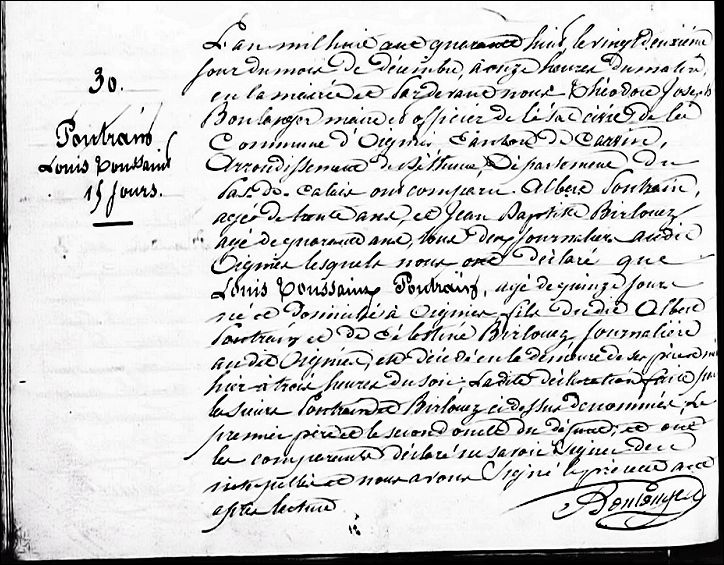 30.
Pontrain
Louis Toussaint
15 jours.
L'an mil huit cent quarante huit, le vingt deuxième
jour du mois de décembre à onze heures du matin,
en la mairie et par devant nous Théodore Joseph
Boulanger maire et officier de l'état civil de la
Commune d'Oignies Canton de Carvin,
Arrondissement de Béthune, Département du
Pas-de-Calais ont comparu Albert Pontrain,
agé de trente ans, et Jean Baptiste Birlouez
agé de quarante ans, tous deux journaliers audit
Oignies lesquels nous ont déclaré que
Louis Toussaint Pontrain, agé de quinze jours
né et domicilié à Oignies fils dudit Albert
Pontrain et de Célestine Birlouez journalière
audit Oignies, est décédé en la demeure de ses père et mère
hier à trois heures du soir. La dite déclaration faite par
les sieurs Pontrain et Birlouez ci dessus dénommés, le
premier père et le second oncle du défunt, et ont
les comparants déclaré ne savoir signer de ce
interpellés et nous avons signé le présent acte
après lecture
Boulanger